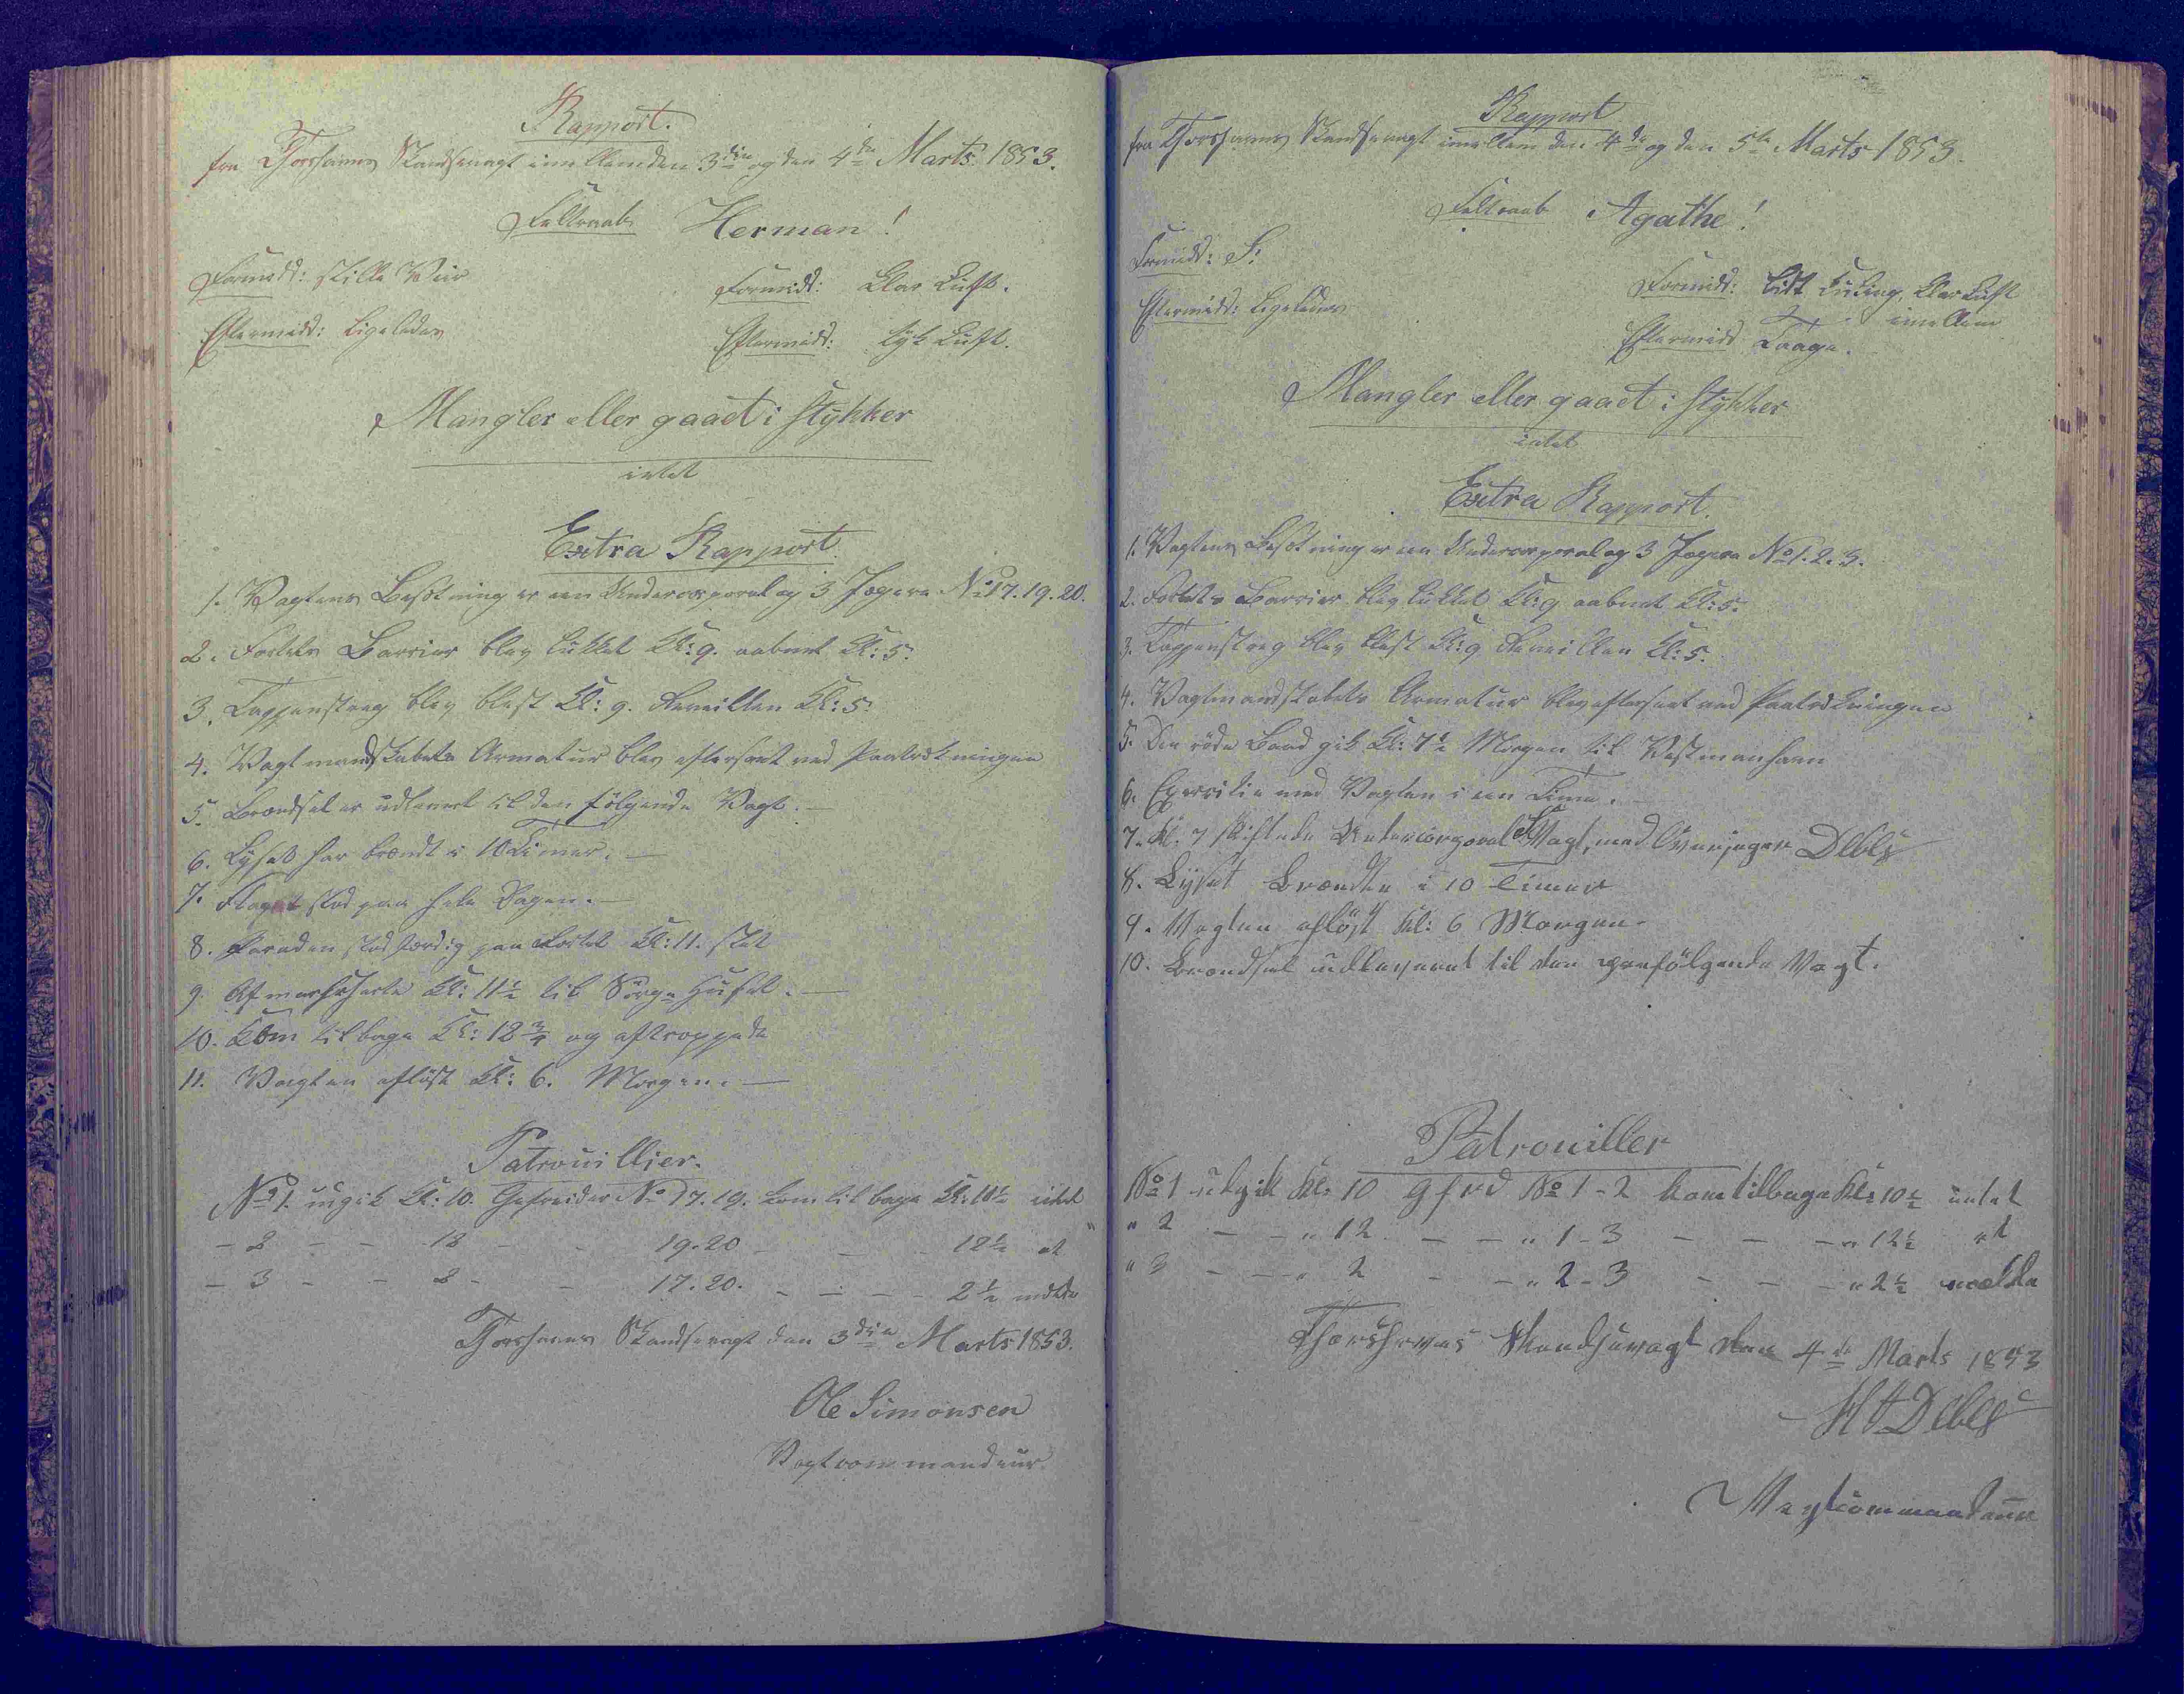 Rapport.
fra Thorshavns Skandsevagt imellem den 3die og den 4de Marts 1853.
Feltraab Herman!
Formidd: stille Veir
Formidd: klar Luft.
Eftermidd: Ligeledes
Eftermidd: tyk Luft.
Mangler eller gaaet i stykker
intet
Extra Rapport.
1. Vagtens Besætning er een Undercorporal og 3 Jægere No 17. 19. 20.
2. Fortets Barrier blev lukket Kl: 9. aabnet Kl: 5.
3. Tappenstreg blev blæst Kl: 9. Reveillen Kl: 5.
4. Vagtmandskabets Armatur blev efterseet ved Paatrækningen
5. Brændsel er udleveret til den følgende Vagt. —
6. Lyset har brændt i 10 Timer. —
7. Flaget stod paa hele Dagen. —
8. Paraden stod færdig paa Fortet Kl: 11. slet
9. Afmarscherte Kl: 11½ til Sørge Huset. —
10. Kom tilbage Kl: 12¾ og aftroppede
11. Vagten afløst Kl: 6. Morgen. —
Patrouillier.
No 1. udgik Kl: 10. Gefreider No 17. 19. kom tilbage Kl: 10½ intet
- 2 - - 12 - - 19. 20 - - - 12½ at
- 3 - - 2 - - 17. 20. - - - - 2½ melde
Thorshavns Skandsevagt den 3die Marts 1853.
Ole Simonsen
Vagtcommandeur.
Rapport
fra Thorshavns Skandsevagt imellem den 4de og den 5te Marts 1853.
Feltraab Agathe!
Formidd: S:
Formidd: lidt Kuling, klar Luft
Eftermidd: Ligeledes
imellem
Eftermidd Taage.
Mangler eller gaaet i stykker
intet
Extra Rapport.
1. Vagtens Besætning er een Undercorporal og 3 Jægere No 1. 2. 3.
2. Fortets Barrier blev lukket Kl: 9 aabnet Kl: 5.
3. Tappenstreg blev blæst Kl: 9 Reveillen Kl: 5.
4. Vagtmandskabets Armatur blev efterseet ved Paatrækningen
5. Den røde Baad gik Kl: 7½ Morgen til Vestmanhavn
6. Exersitie med Vagten i een Time. —
7. Kl: 7 skiftede Undercorporal Vagt, med Overjæger Debes
8. Lyset brændte i 10 Timer
9. Vagten afløst Kl: 6 Morgen.
10. Brændsel udleveret til den paafølgende Vagt.
Patrouiller
No 1 udgik Kl: 10 Gfrd No 1 - 2 kom tilbage Kl: 10½ intet
" 2 - - " 12 - - " 1 - 3 - - - " 12½ at
" 3 - - - " 2 - - " 2 - 3 - - - " 2½ melde
Thorshavns Skandsevagt den 4de Marts 1853
Debes
Vagtcommandeur